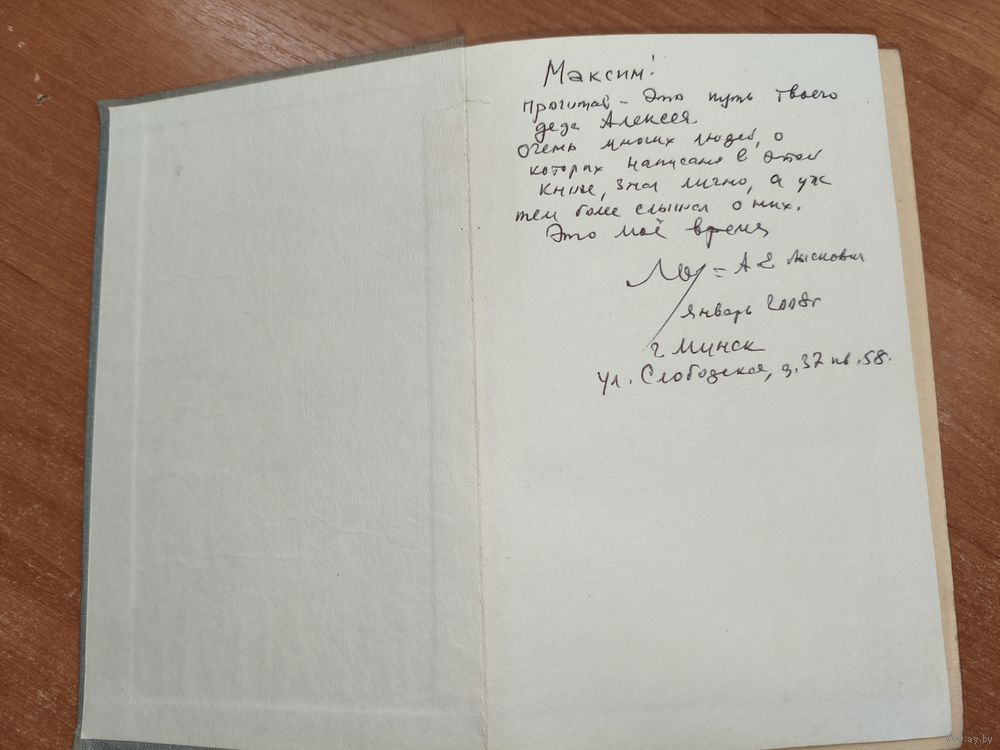 Максим!
прочитай - Это путь твоего
деда Алексея.
Очень многих людей, о
которых написано в этой
книге, знал лично, а уж
тем более слышал о них.
Это моё время
= А Е Лыскович
январь 2008г
г Минск
ул. Слободская, д.37 кв.58.
www.ay.by